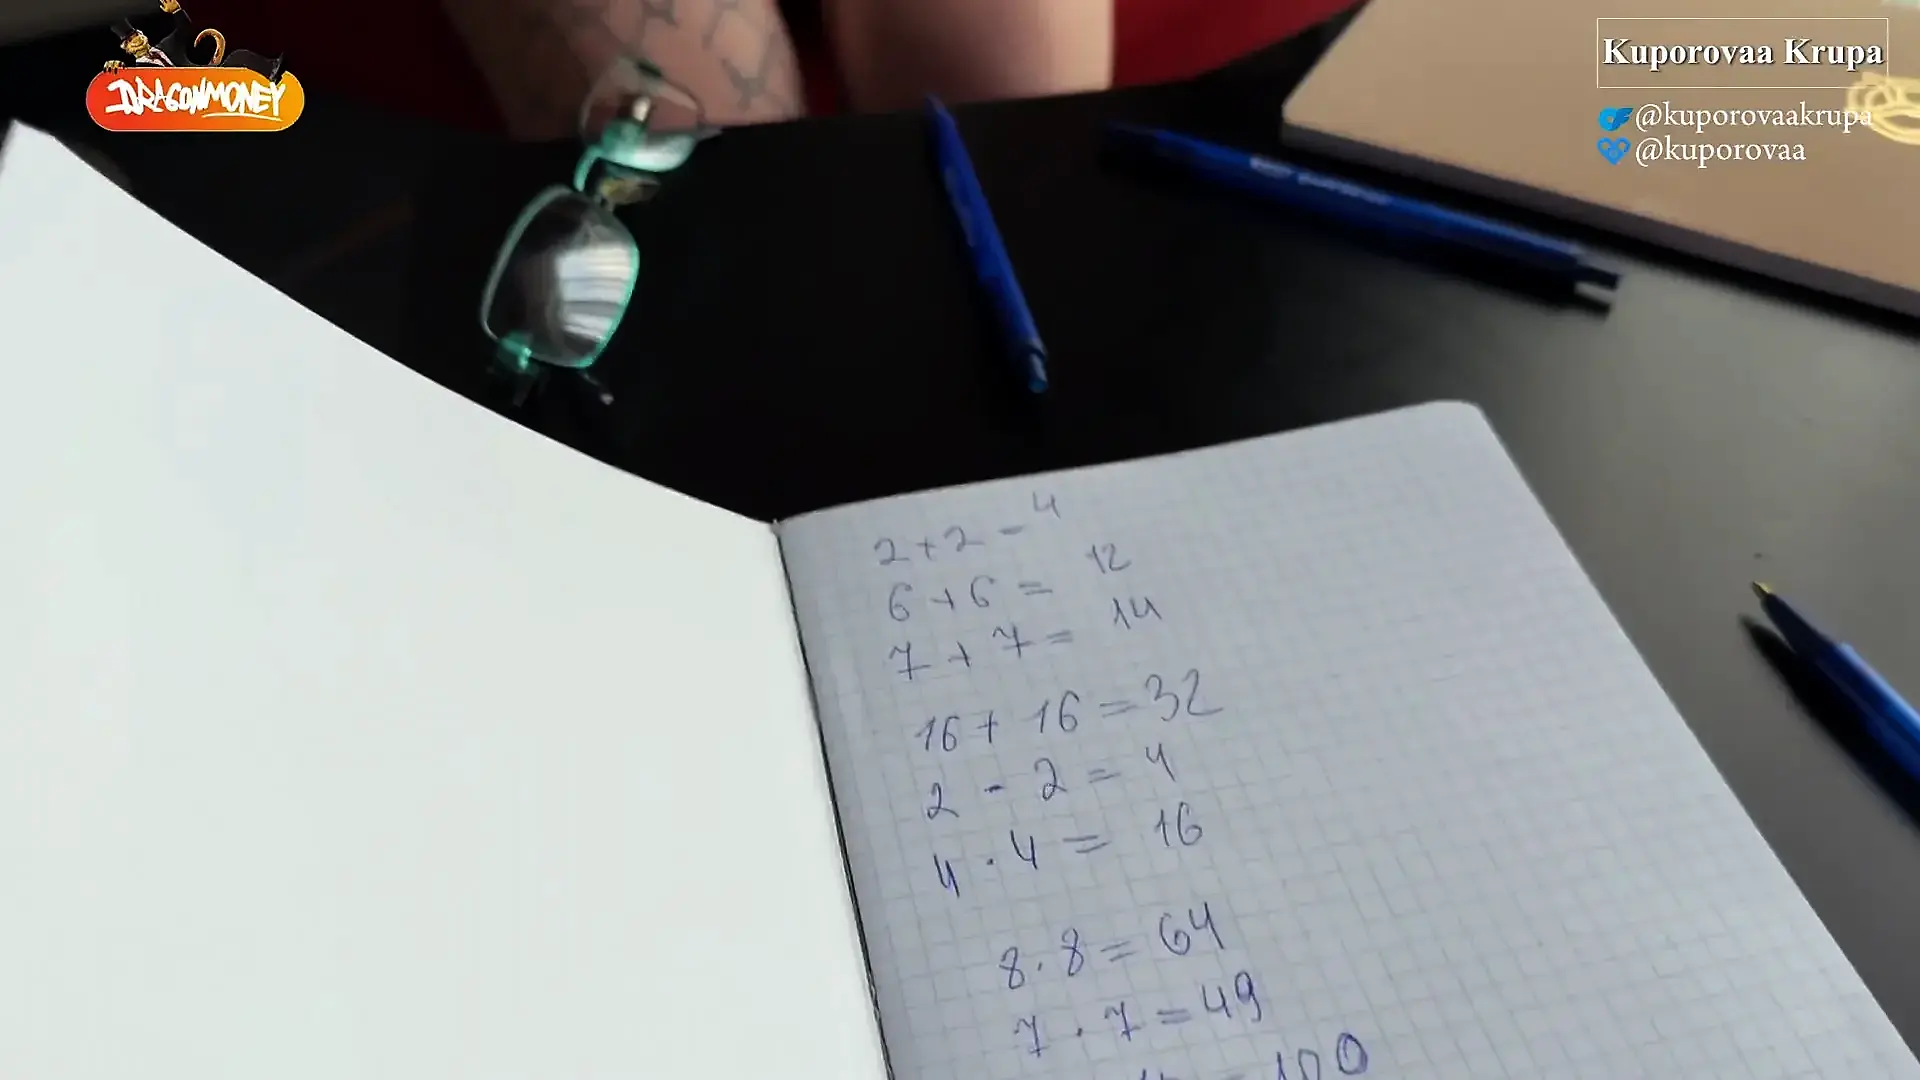 DRAGONMONEY
Kuporovaa Krupa
@kuporovaakrupa
@kuporovaa
2+2=4
6+6= 12
7+7= 14
16+16=32
2-2=4
4·4=16
8·8=64
7·7=49
=100